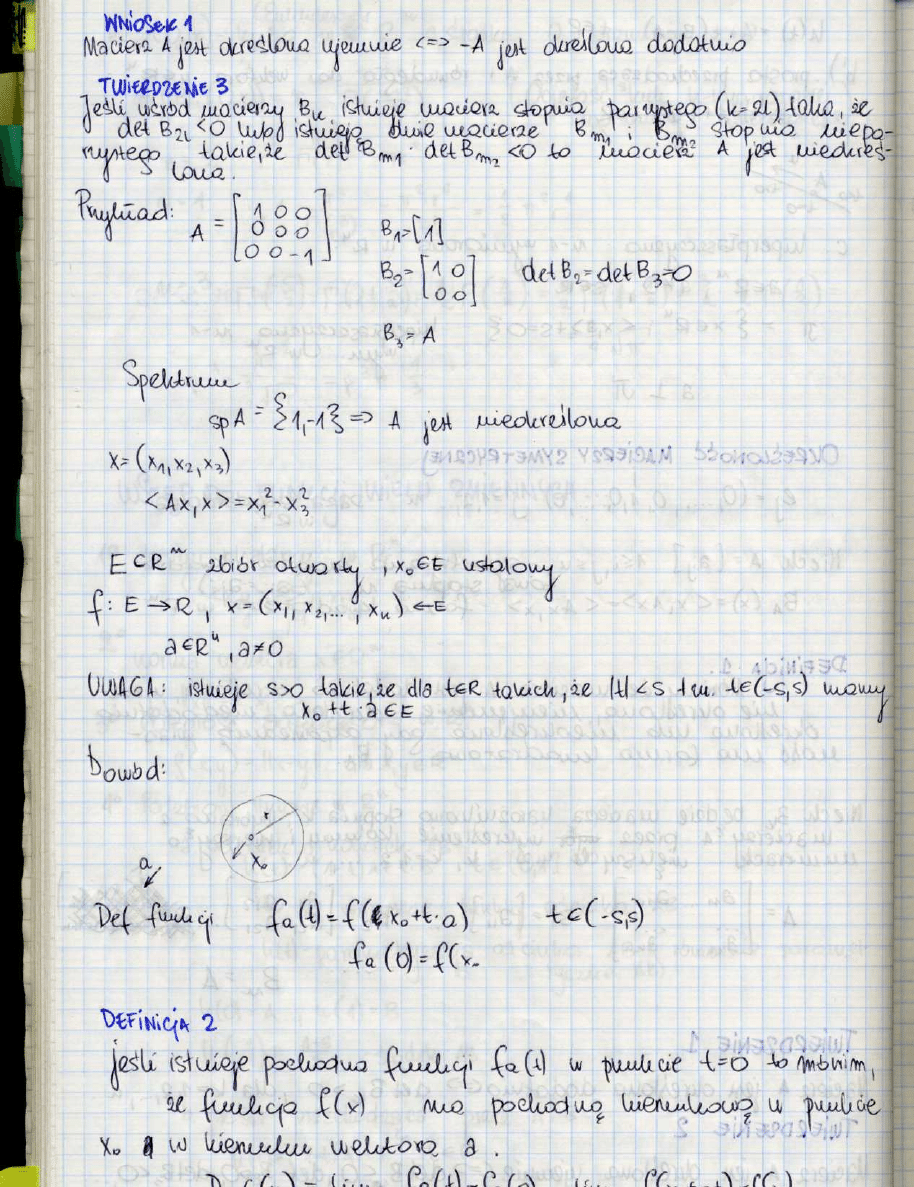 WNIOSEK 1
Macierz A jest określona ujemnie <=> -A jest określona dodatnio
TWIERDZENIE 3
Jeśli wśród macierzy Bk istnieje macierz stopnia parzystego (k=2l) taka, że
det B2l <0 lub istnieją dwie macierze Bm1 i Bm2 stopnia niepa-
rzystego takie, że det Bm1 · det Bm2 <0 to macierz A jest nieokreś-
lona.
Przykład: A = [1 0 0
0 0 0
0 0 -1]
B1=[1]
B2=[1 0
0 0] det B2=det B3=0
B3=A
Spektrum
spA = {1,-1} => A jest nieokreślona
x=(x1,x2,x3)
<Ax,x>=x1²-x3²
E⊂R^n zbiór otwarty, x0∈E ustalony
f: E→R, x=(x1,x2,...,xn)←E
a∈R^n, a≠0
UWAGA: istnieje s>0 takie, że dla t∈R takich, że |t|<s tzn. t∈(-s,s) mamy
x0+t·a∈E
Dowód:
r
x0
a
Def funkcji fa(t)=f(x0+t·a) t∈(-s,s)
fa(0)=f(x0
DEFINICJA 2
jeśli istnieje pochodna funkcji fa(t) w punkcie t=0 to mówim,
że funkcja f(x) ma pochodną kierunkową w punkcie
x0 w kierunku wektora a.